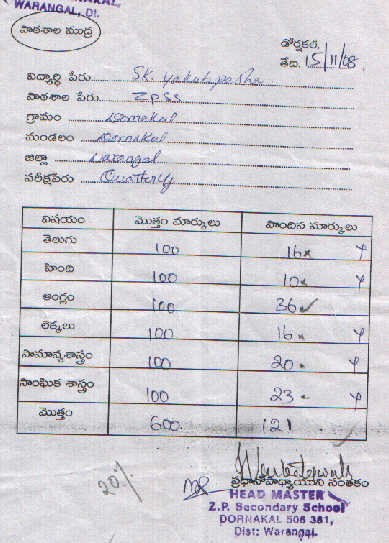 WARANGAL, Dt.
పాఠశాల ముద్ర
డోర్నకల్,
తేది. 15/11/08
విద్యార్థి పేరు Sk. yakub pasha
పాఠశాల పేరు ZPSS
గ్రామం Dornakal
మండలం Dornakal
జిల్లా Warangal
పరీక్షపేరు Quarterly
విషయం మొత్తం మార్కులు పొందిన మార్కులు
తెలుగు 100 16
హింది 100 10
ఆంగ్లం 100 36
లెక్కలు 100 16
సామాన్యశాస్త్రం 100 20
సాంఘిక శాస్త్రం 100 23
మొత్తం 600 121
20%
ప్రధానోపాధ్యాయుని సంతకం
HEAD MASTER
Z.P. Secondary School
DORNAKAL 506 381,
Dist: Warangal.